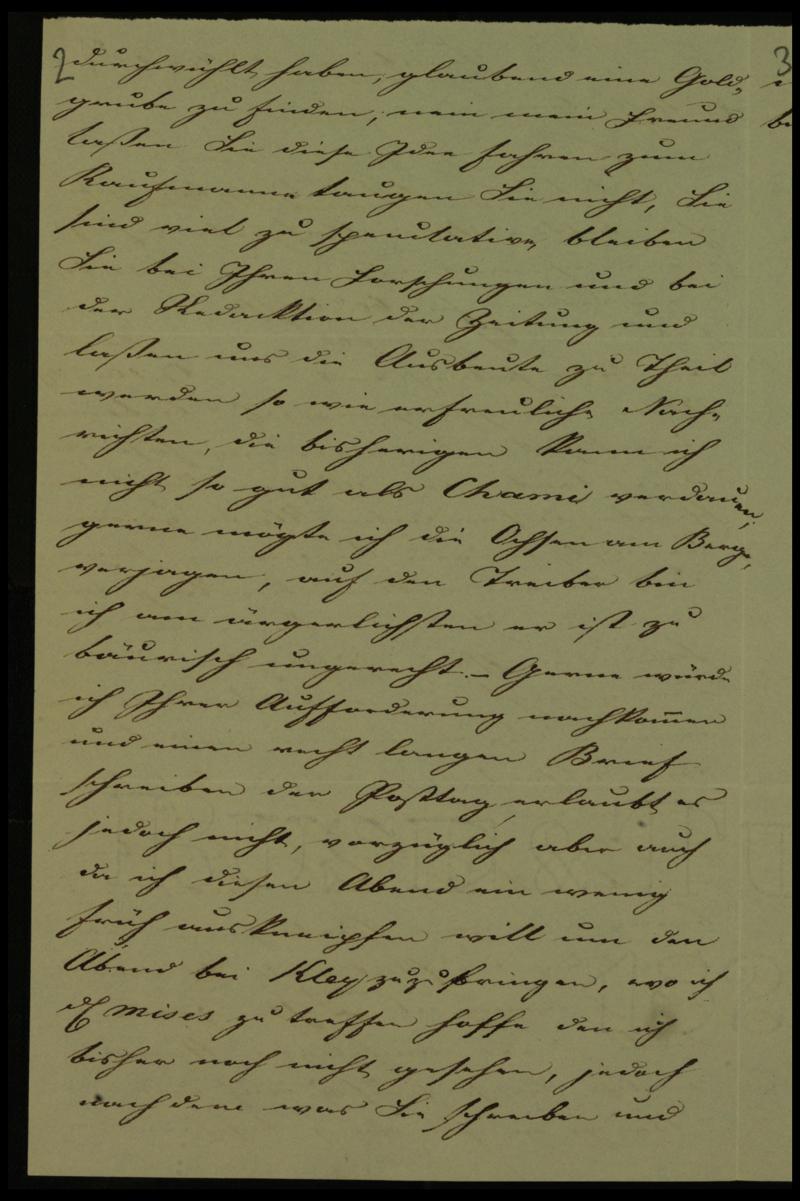 2
durchwühlt haben, glaubend eine Gold-
grube zu finden; nein mein Freund
laßen Sie diese Idee fahren zum
Kaufmanne taugen Sie nicht, Sie
sind viel zu speculative, bleiben
Sie bei Ihren Forschungen und bei
der Redacktion der Zeitung und
laßen uns die Ausbeute zu Theil
werden so wie erfreuliche Nach-
richten, die bisherigen kann ich
nicht so gut als Chami verdauen,
gerne mögte ich die Ochsen am Berge,
verjagen, auf den Treiber bin
ich am ärgerlichsten er ist zu
bäurisch ungerecht. – Gerne würde
ich Ihrer Aufforderung nachkom̅en
und einen recht langen Brief
schreiben der Posttag erlaubt es
jedoch nicht, vorzüglich aber auch
da ich diesen Abend ein wenig
früh auskneipfen will um den
Abend bei Kley zuzubringen, wo ich
Mises zu treffen hoffe den ich
bisher noch nicht gesehen, jedoch
nach dem was Sie schreiben und
3